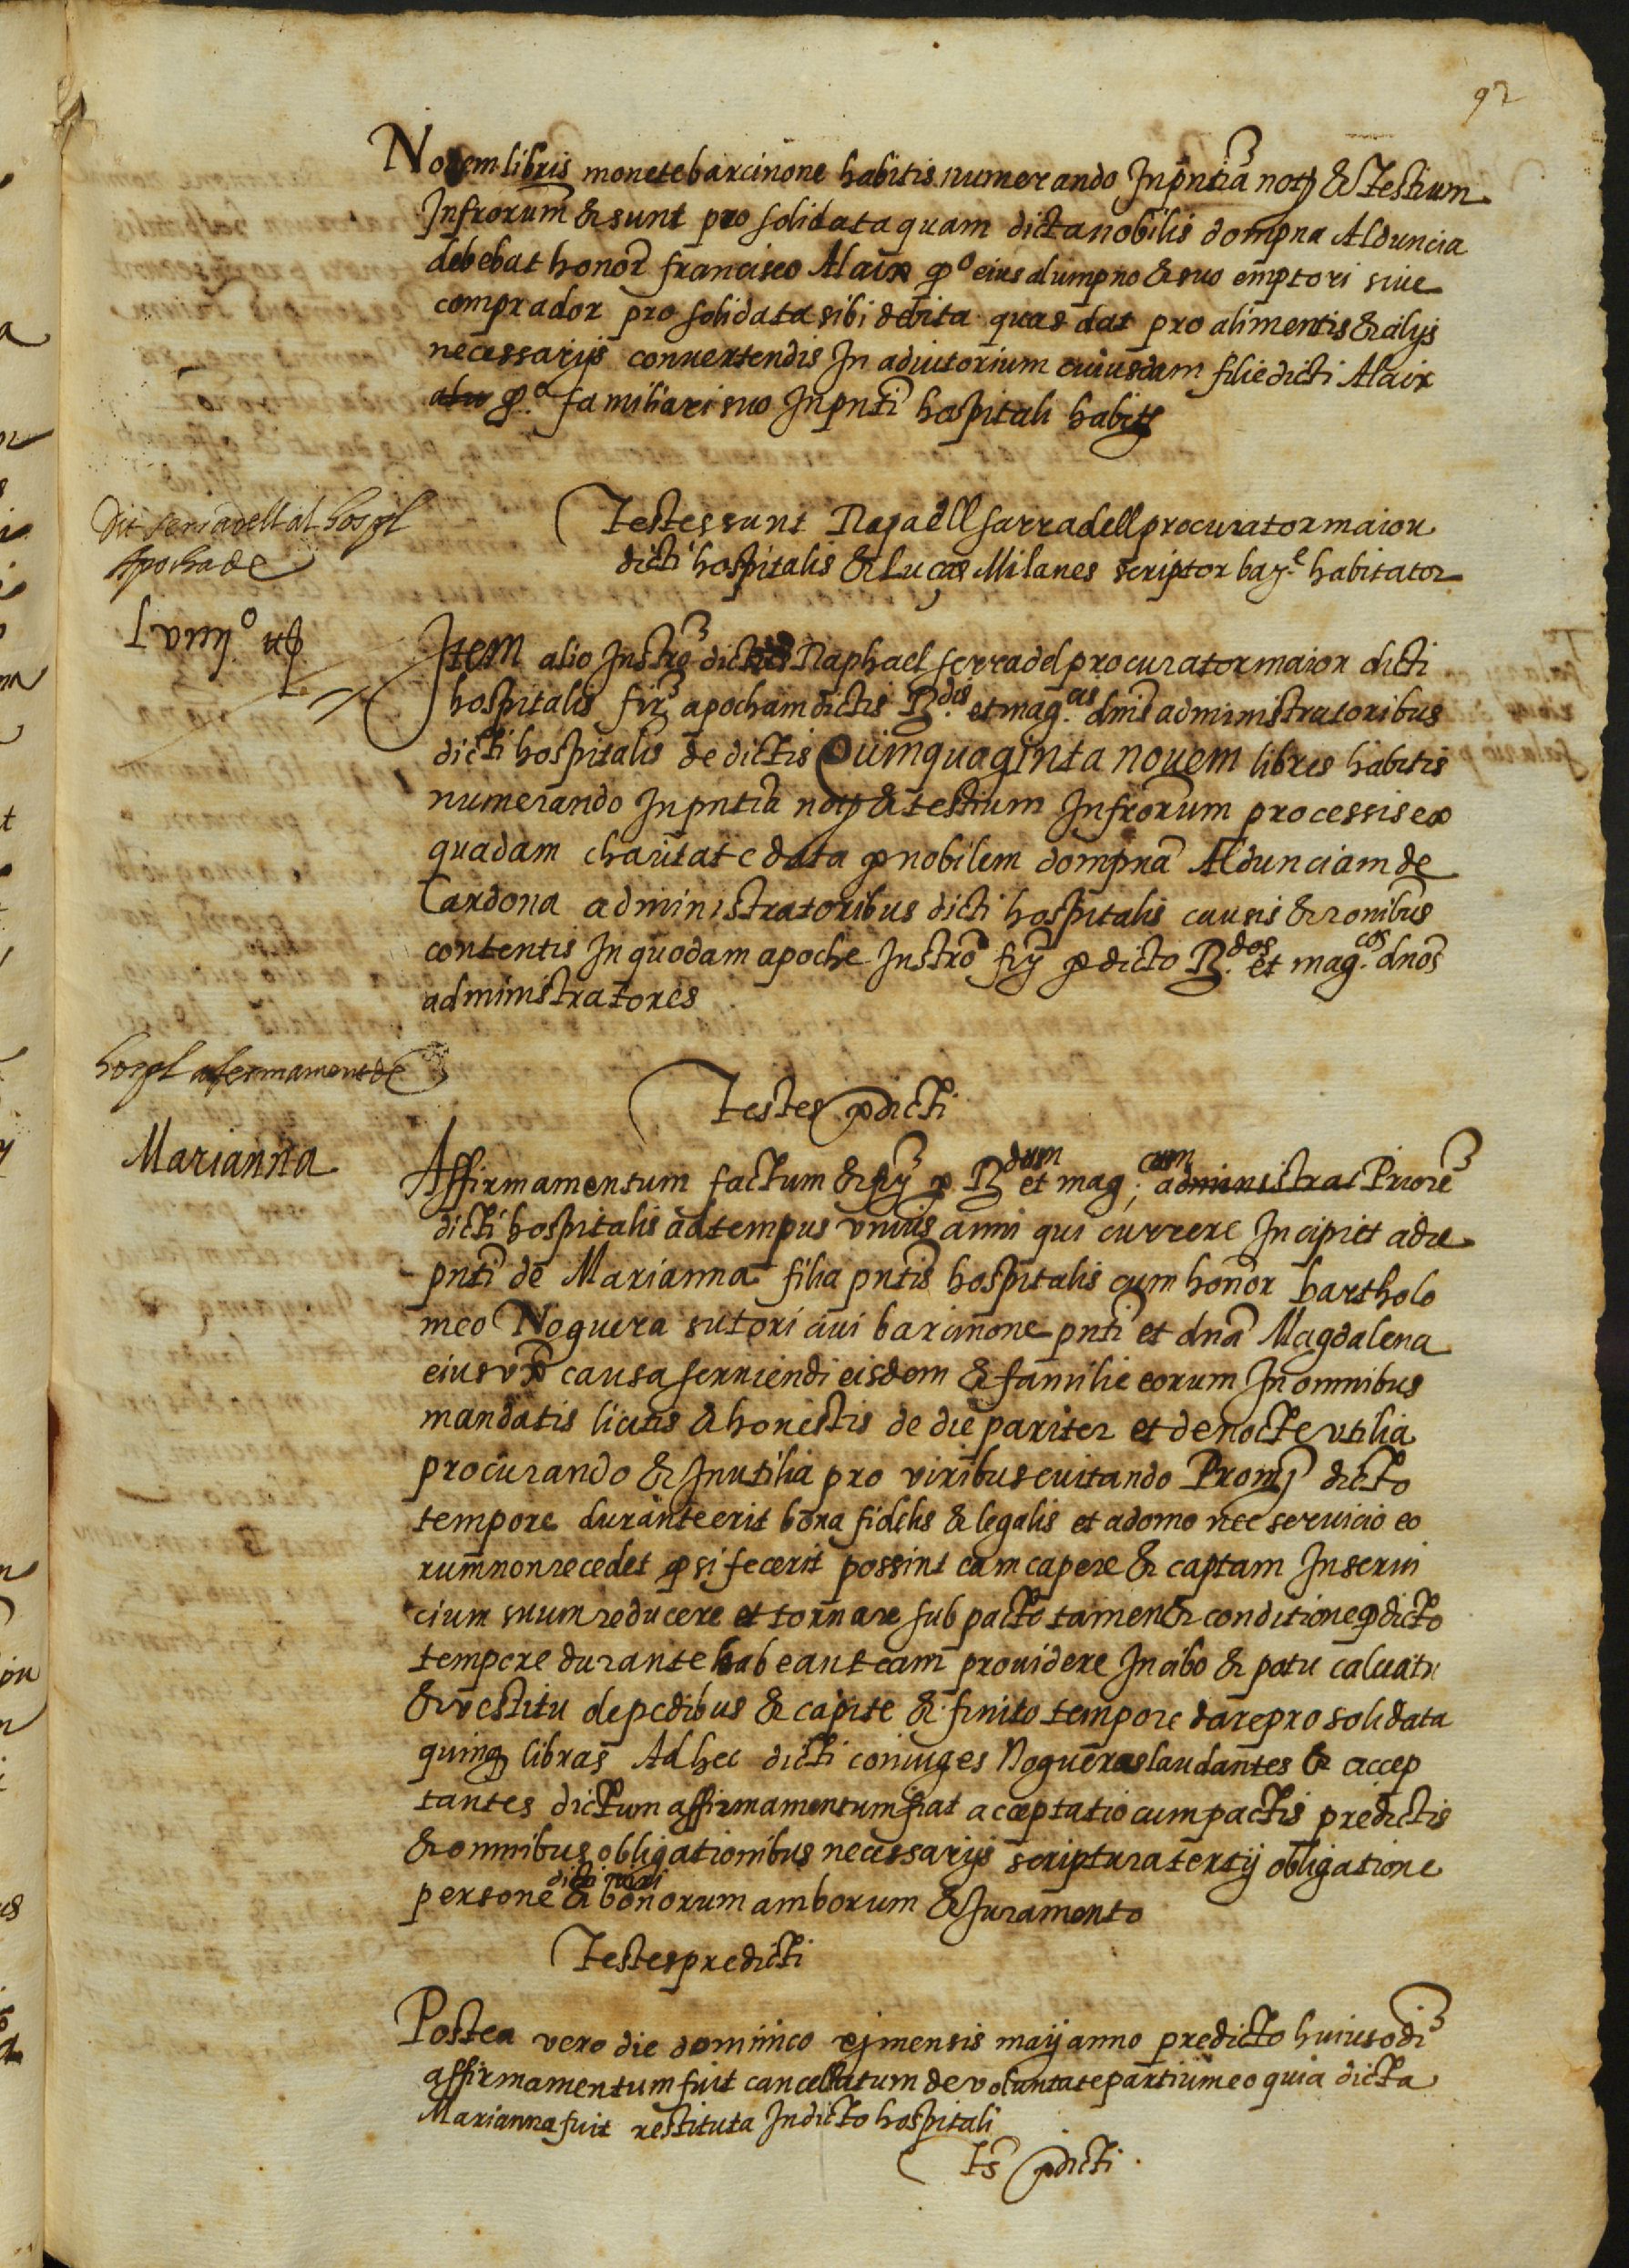 92
Nouem libris monete barcinone habitis numerando In pntia noty & testium
Infrorum & sunt pro solidata quam dicta nobilis dompna Alduncia
debebat honor francisco Alaix qº eius alumpno & suo emptori siue
comprador pro solidata sibi debita quas dat pro alimentis & alijs
necessarijs conuertendis In adiutorium cuiusdam filie dicti Alaix
qº familiari suo In pnti hospitali habite
Testes sunt Rafaell sarradell procurator maior
dicti hospitalis & Lucas Milanes scriptor bar.e habitator
Dit serradell al hospl
Apocha de
Item alio Instro dictus Raphael serradel procurator maior dicti
hospitalis fir apocham dictis R.dis et mag.cis dnis administratoribus
dicti hospitalis de dictis Quinquaginta nouem libris habitis
numerando In pntia noty & testium Infrorum processis ex
quadam charitate data p nobilem dompna Aldunciam de
Cardona administratoribus dicti hospitalis causis & ronibus
contentis In quodam apoche Instro fiy p dicto R.dos et mag.cos dnos
administratores
hospl afermament de
Testes pdicti
Marianna
Affirmamentum factum & fiy p R dum et mag; cum administrat Priore
dicti hospitalis ad tempus vnius anni qui currere Incipiet a die
pnti de Marianna filia pntis hospitalis cum honor bartholo
meo Noguera sutori ciui barcinone pnti et dna Magdalena
eius vx causa seruiendi eisdem & familie eorum In omnibus
mandatis licitis & honestis de die pariter et de nocte vtilia
procurando & Inutilia pro viribus euitando Promj dicto
tempore durante erit bona fidelis & legalis et a domo nec seruicio eo
rum non recedet q si fecerit possint eam capere & captam In serui
cium suum reducere et tornare sub pacto tamen & conditione q dicto
tempore durante habeant eam prouidere In cibo & potu calciatu
& vestitu de pedibus & capite & finito tempore dare pro solidata
quinq libras Ad hec dicti coniuges Nogueras laudantes & accep
tantes dictum affirmamentum fiat acceptatio cum pactis predictis
& omnibus obligationibus necessarijs scriptura tertij obligatione
persone dicti viri & bonorum amborum & Juramento
Testes predicti
Postea vero die dominico xj mensis maij anno predicto huiusodi
affirmamentum fuit cancellatum de voluntate partium eo quia dicta
Marianna fuit restituta In dicto hospitali
Ts pdicti